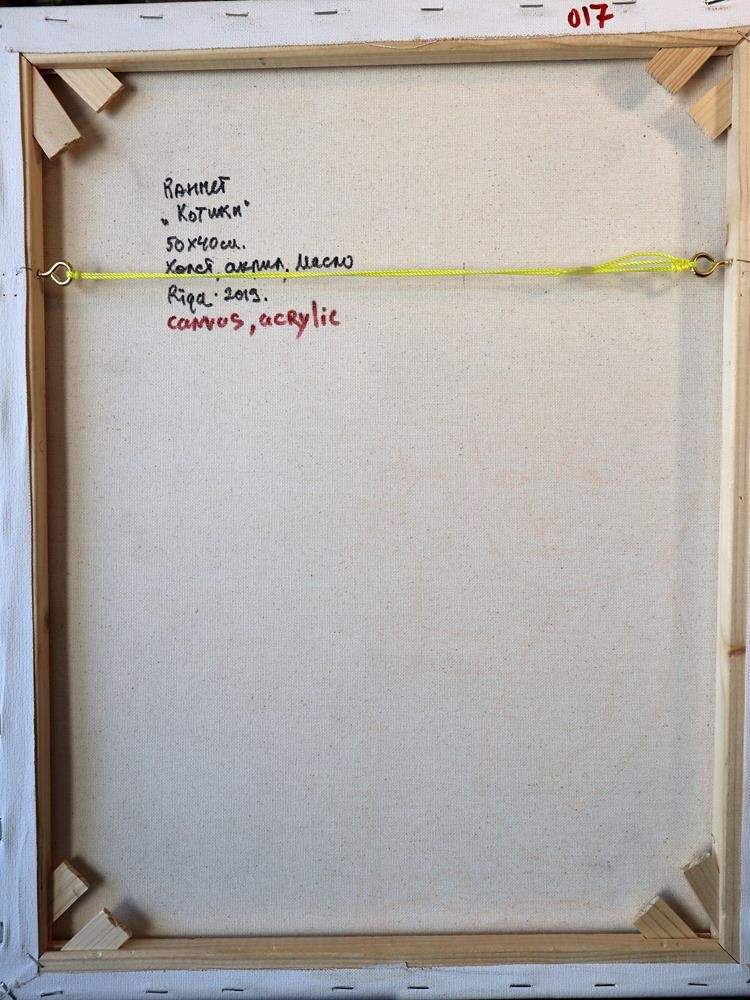 017
Раннет
„Котики"
50x40см.
Холст, акрил, масло
Rīga. 2019.
canvas, acrylic